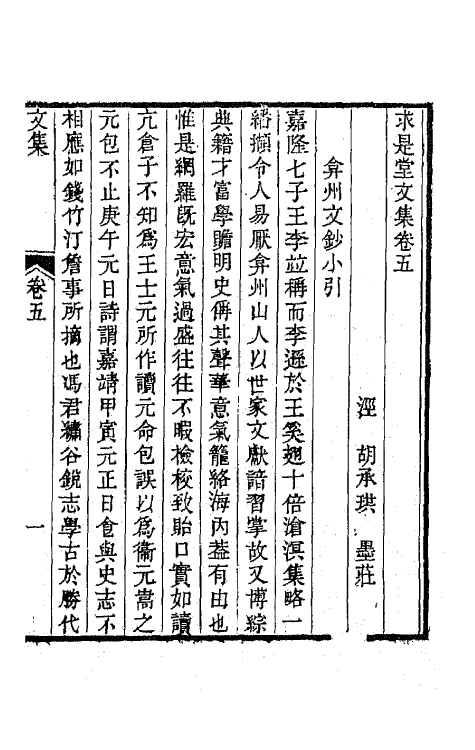 求是堂文集卷五
涇　胡承珙　墨莊
弇州文鈔小引
嘉隆七子王李竝稱而李遜於王奚翅十倍滄溟集略一
繙擷令人易厭弇州山人以世家文獻諳習掌故又博綜
典籍才富學贍明史偁其聲華意氣籠絡海內葢有由也
惟是網羅旣宏意氣過盛往往不暇檢校致貽口實如讀
亢倉子不知爲王士元所作讀元命包誤以爲衞元嵩之
元包不止庚午元日詩謂嘉靖甲寅元正日食與史志不
相應如錢竹汀詹事所摘也馮君繡谷銳志學古於勝代
文集
卷五
一